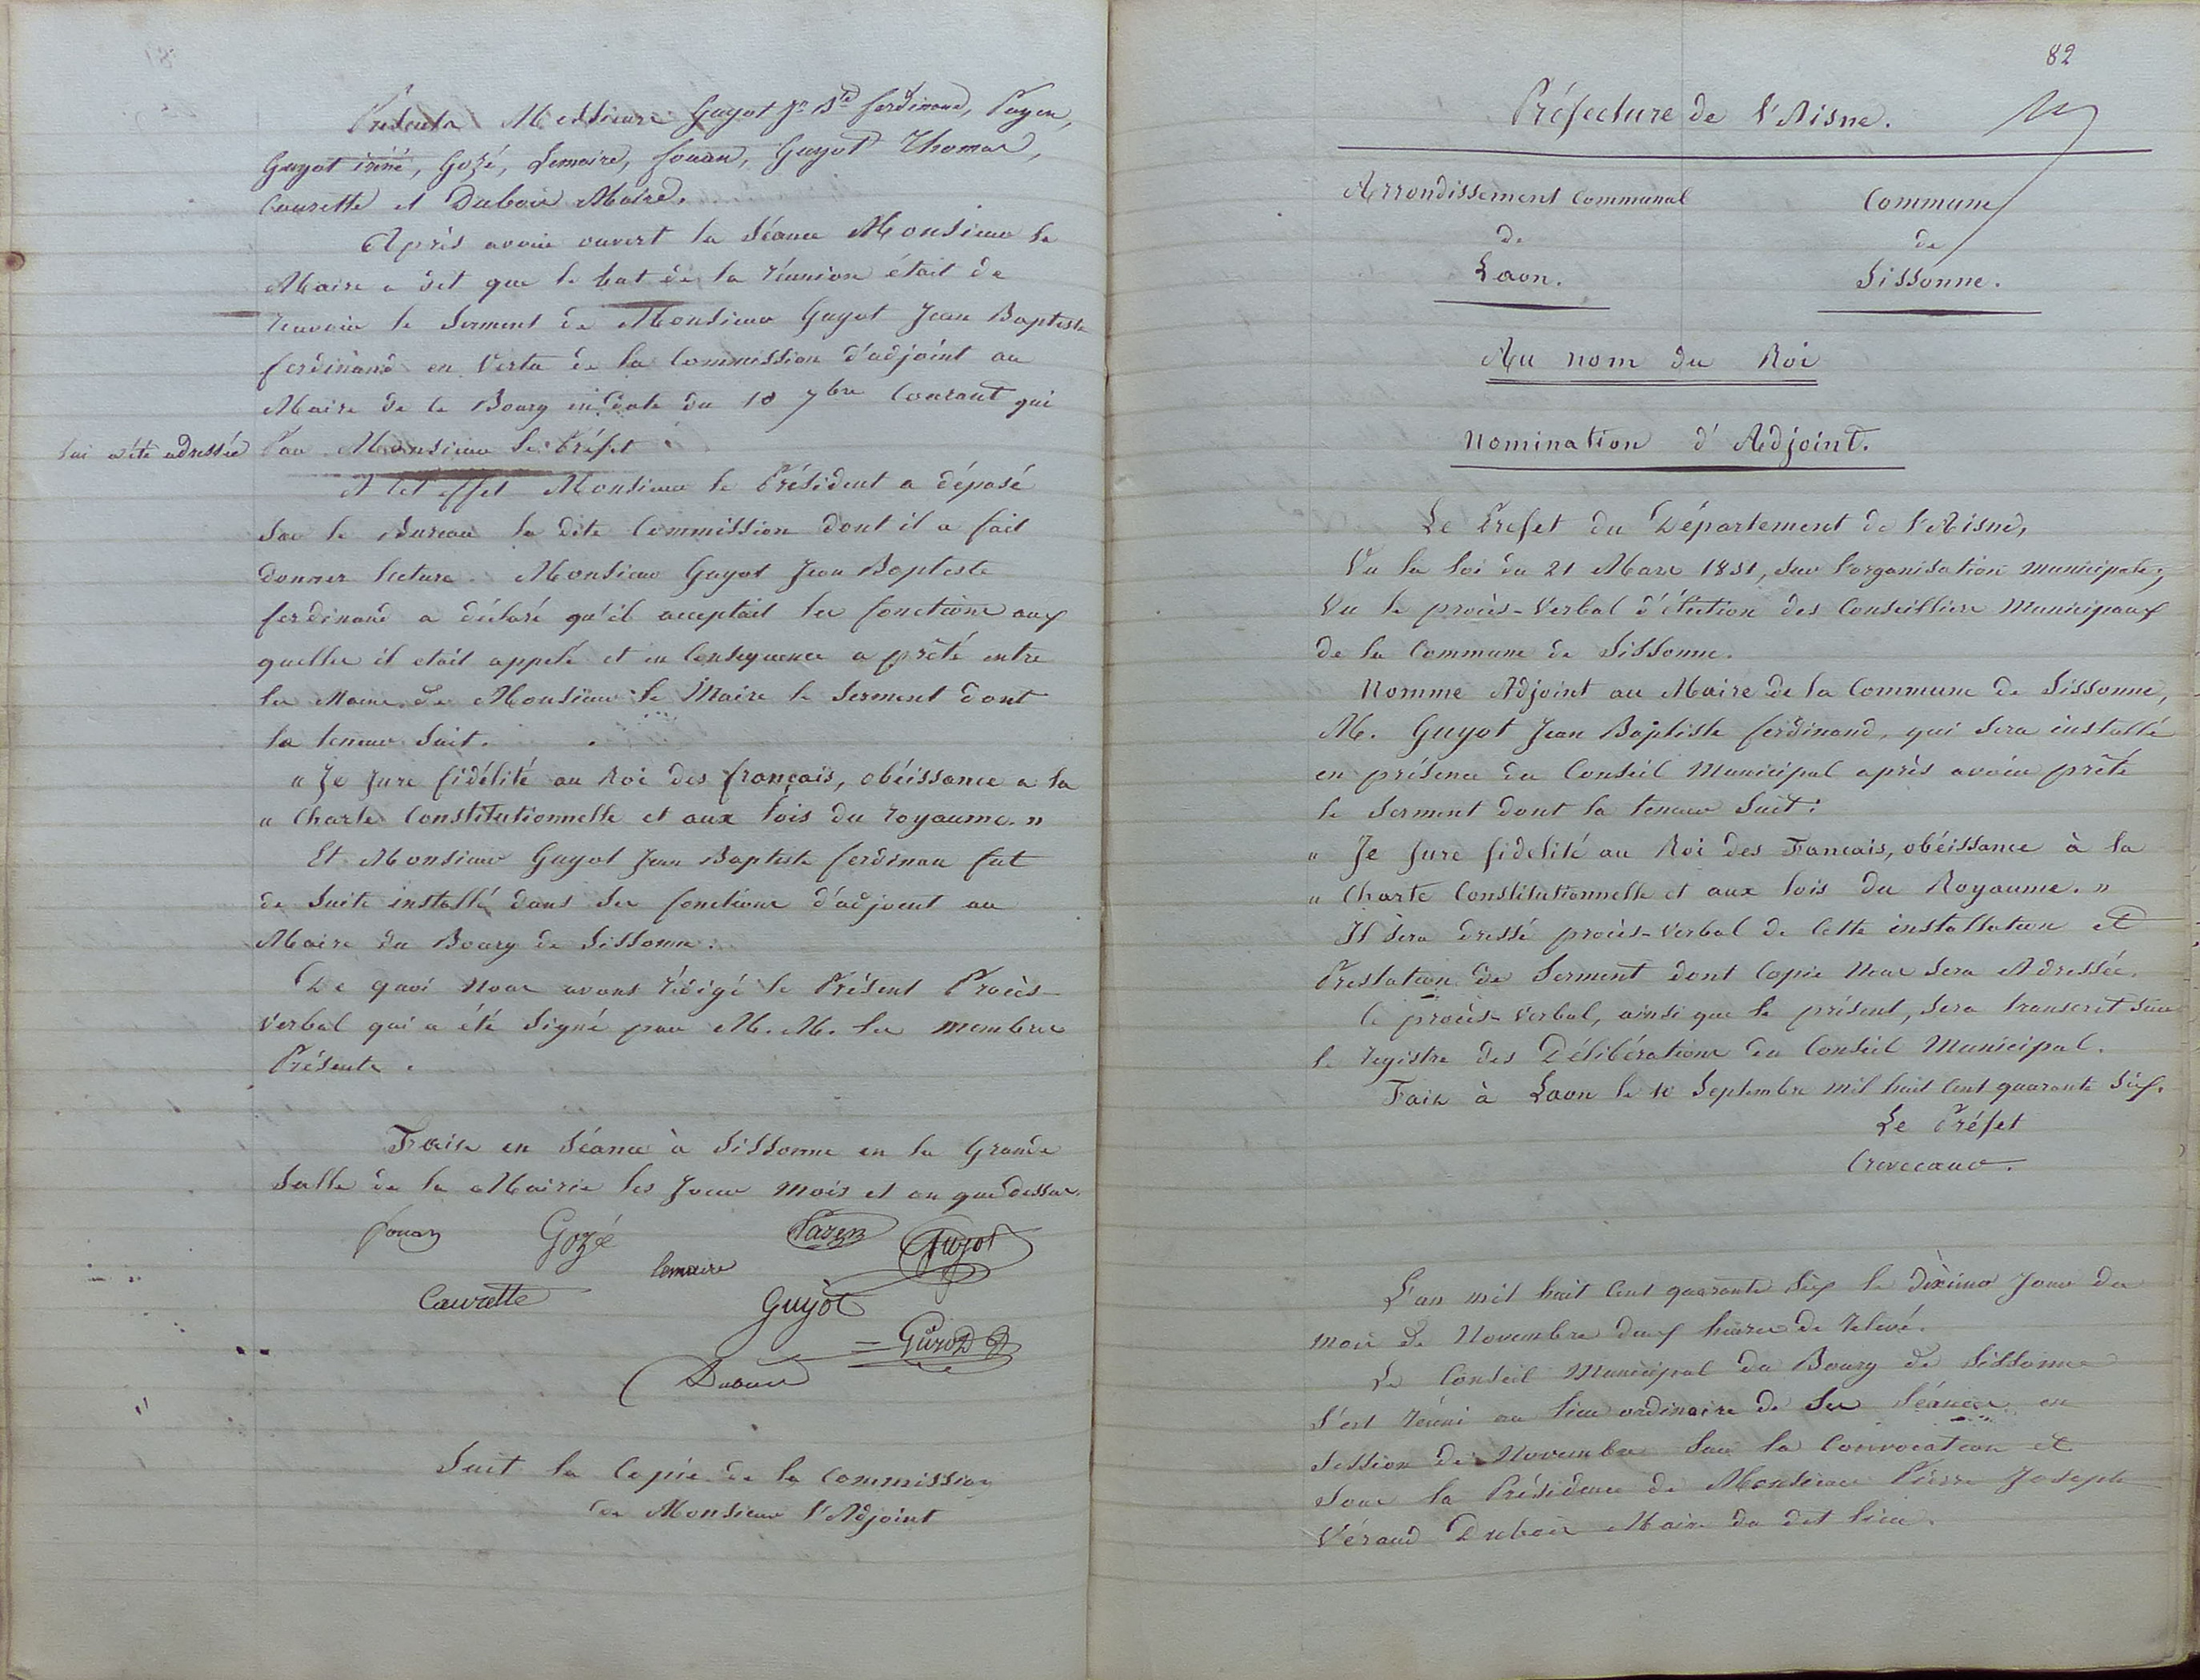 Présents Messieurs Guyot Jn Bte ferdinand, Payen,
Guyot iréné, Gozé, Lemaire, fouan, Guyot Thomas,
Caurette et Dubois Maire.
Après avoir ouvert la Séance Monsieur le
Maire a dit que le but de la réunion était de
recevoir le Serment de Monsieur Guyot Jean Baptiste
ferdinand en Vertu de la Commission d'adjoint au
Maire de ce Bourg en date du 10 7bre Courant qui
lui a été adressée Par Monsieur le Préfet
A Cet effet Monsieur le Président a déposé
Sur le Bureau la dite Commission dont il a fait
donner lecture. Monsieur Guyot Jean Baptiste
ferdinand a déclaré qu'il acceptait les fonctions aux
quelles il etait appelé et en Consequence a prêté entre
les Mains de Monsieur le Maire le Serment dont
la teneur Suit.
" Je Jure fidélité au Roi des français, obéissance a la
" Charte Constitutionnelle et aux lois du royaume. "
Et Monsieur Guyot Jean Baptiste ferdinan fut
de Suite installé dans Ses fonctions d'adjoint au
Maire du Bourg de Sissonne.
De quoi Nous avons rédigé le Présent Procès-
Verbal qui a été Signé par M. M. les membres
Présents.
Fait en Séance à Sissonne en la Grande
Salle de la Mairie les Jour Mois et an que dessus.
fouan Gozé Payen Guyot
Lemaire
Caurette Guyot
Guyot
Dubois
Suit la Copie de la Commission
de Monsieur l'Adjoint
82
Préfecture de l'Aisne.
Arrondissement Communal Commune
de de
Laon. Sissonne.
Au nom du Roi
Nomination d'Adjoint.
Le Préfet du Département de l'Aisne,
Vu la loi du 21 Mars 1831, sur l'organisation Municipale;
Vu le procès-Verbal d'élection des Conseillers Municipaux
de la Commune de Sissonne.
Nomme Adjoint au Maire de la Commune de Sissonne,
M. Guyot Jean Baptiste ferdinand, qui Sera installé
en présence du Conseil Municipal après avoir prêté
le Serment dont la teneur Suit:
" Je Jure fidelité au Roi des Fancais, obéissance à la
" Charte Constitutionnelle et aux lois du Royaume. "
Il Sera dressé procès-Verbal de Cette installation et
Prestation de Serment dont Copie Nous Sera Adressée.
Ce procès-Verbal, ainsi que le présent, Sera transcrit Sur
le registre des Délibérations du Conseil Municipal.
Fait à Laon le 10 Septembre mil huit Cent quarante Six.
Le Préfet
Crevecœur.
L'an mil huit Cent quarante Six le dixième Jour du
mois de Novembre deux heures de relevé.
Le Conseil Municipal du Bourg de Sissonne
S'est réuni au lieu ordinaire de Ses Séances en
Session de Novembre Sur la Convocation et
Sous la Présidence de Monsieur Pierre Joseph
Véraud Dubois Maire du dit lieu.